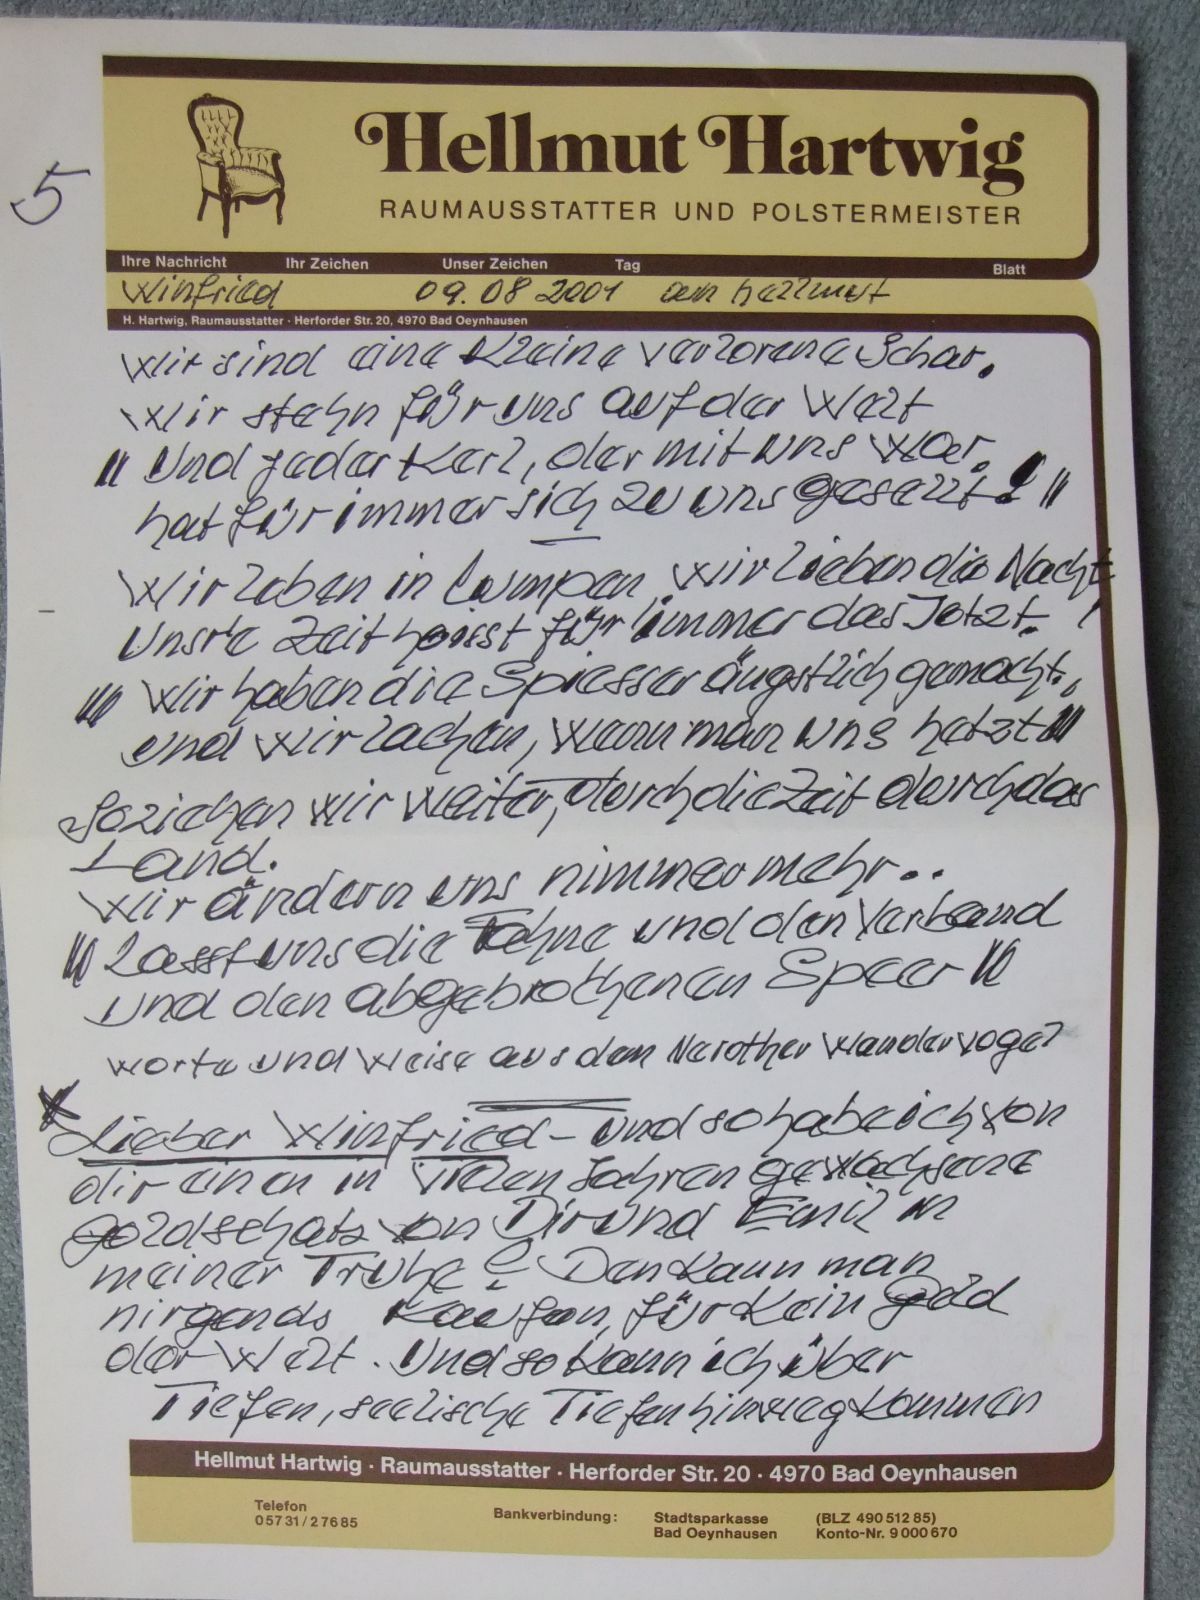 5
Hellmut Hartwig
RAUMAUSSTATTER UND POLSTERMEISTER
Ihre Nachricht Ihr Zeichen Unser Zeichen Tag Blatt
Winfried 09.08 2001 hellmut
H. Hartwig, Raumausstatter · Herforder Str. 20, 4970 Bad Oeynhausen
Wir sind eine Kleine verlorene Schar.
Wir stehn für uns auf der Welt
" Und jeder Kerl, der mit uns war.
hat für immer sich zu uns gesellt! "
Wir leben in Lumpen, wir lieben die Nacht
Uns're Zeit heisst für immer das Jetzt. !
" Wir haben die Spiesser ängstlich gemacht.,
und wir lachen, wenn man uns hetzt "
So ziehen wir weiter, durch die Zeit durch das
Land.
Wir ändern uns nimmermehr..
" Lasst uns die Fahne und den Verband
und den abgebrochenen Speer "
Worte und Weise aus dem Nerother Wandervogel
Lieber Winfried – und so habe ich von
dir einen in vielen Jahren gewachsene
Goldschatz von Dir und Emil in
meiner Truhe! Den kann man
nirgends kaufen, für kein Geld
der Welt. Und so kann ich über
Tiefen, seelische Tiefen hinweg kommen
Hellmut Hartwig · Raumausstatter · Herforder Str. 20 · 4970 Bad Oeynhausen
Telefon Bankverbindung: Stadtsparkasse (BLZ 490 512 85)
0 57 31 / 2 76 85 Bad Oeynhausen Konto-Nr. 9 000 670